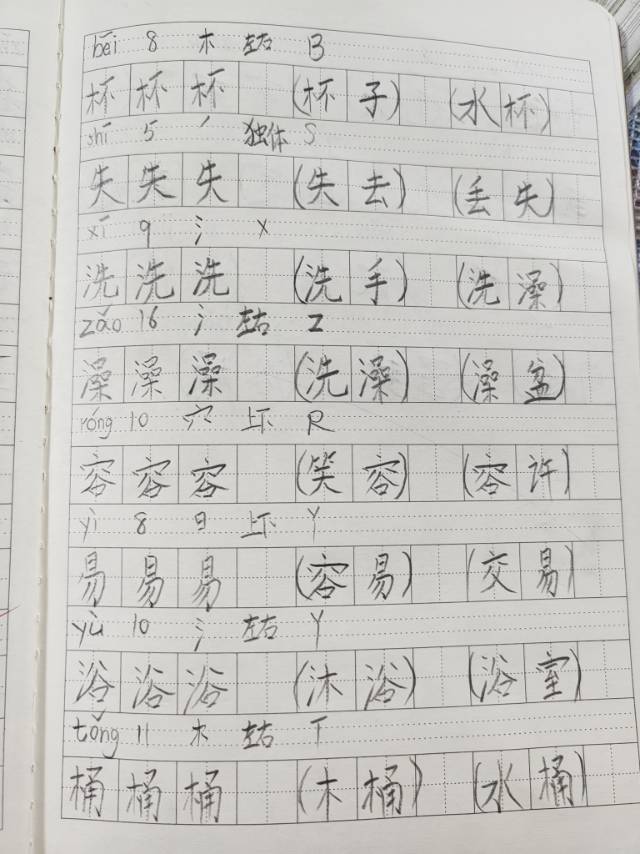 bēi 8 木 左右 B
杯 杯 杯 (杯 子) (水 杯)
shī 5 ノ 独体 S
失 失 失 (失 去) (丢 失)
xǐ 9 氵 X
洗 洗 洗 (洗 手) (洗 澡)
zǎo 16 氵 左右 Z
澡 澡 澡 (洗 澡) (澡 盆)
róng 10 穴 上下 R
容 容 容 (笑 容) (容 许)
yì 8 日 上下 Y
易 易 易 (容 易) (交 易)
yù 10 氵 左右 Y
浴 浴 浴 (沐 浴) (浴 室)
tǒng 11 木 左右 T
桶 桶 桶 (木 桶) (水 桶)